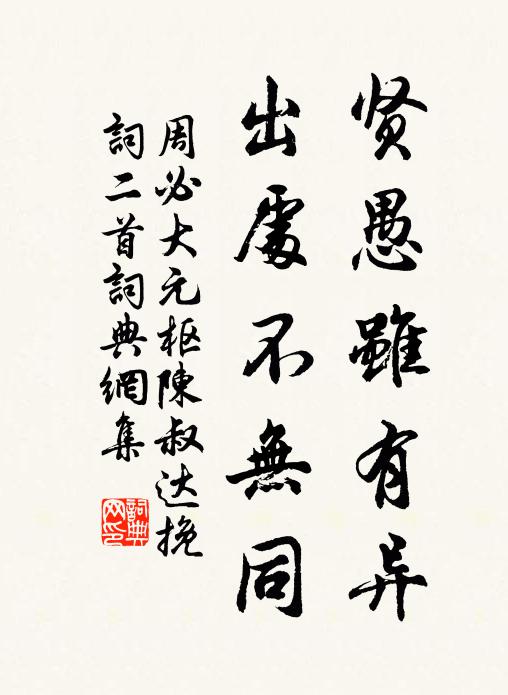 贤愚雖有异
出處不無同
周必大元枢陳叔达挽
詞二首詞典網集
詞典
网印